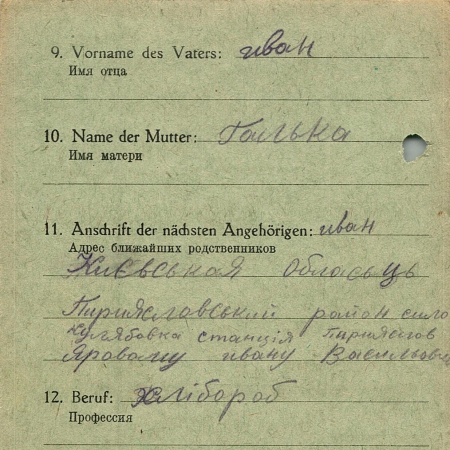 9. Vorname des Vaters: иван
Имя отца
10. Name der Mutter: Галька
Имя матери
11. Anschrift der nächsten Angehörigen: иван
Адрес ближайших родственников
Київськая обласьць
Пирияславський район сило
кулябовка станція Пирияслов
Яровому ивану Васильови
12. Beruf: хлібороб
Профессия